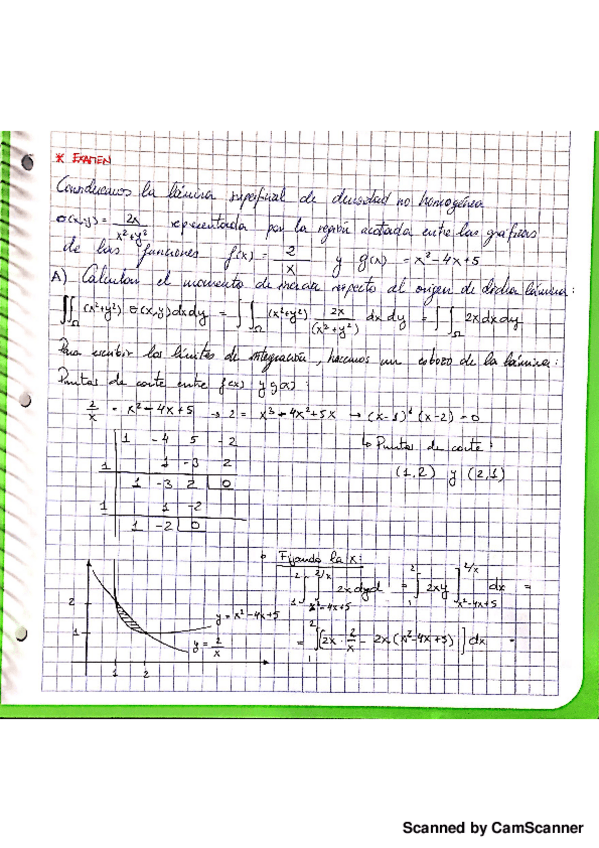 * EXAMEN
Consideramos la lámina superficial de densidad no homogénea
σ(x,y) = 2x/(x²+y²) representada por la región acotada entre las gráficas
de las funciones f(x) = 2/x y g(x) = x²-4x+5
A) Calcular el momento de inercia respecto al origen de dicha lámina:
∬_Ω (x²+y²) σ(x,y) dx dy = ∬_Ω (x²+y²) 2x/(x²+y²) dx dy = ∬_Ω 2x dx dy
Para escribir los límites de integración, hacemos un esbozo de la lámina:
Puntos de corte entre f(x) y g(x):
2/x = x²-4x+5 → 2 = x³-4x²+5x → (x-1)² (x-2) = 0
↳ Puntos de corte:
(1,2) y (2,1)
1 -4 5 -2
1 1 -3 2
1 -3 2 0
1 1 -2
1 -2 0
• Fijando la x:
∫_1^2 ∫_{x²-4x+5}^{2/x} 2x dy d = ∫_1^2 2xy ]_{x²-4x+5}^{2/x} dx =
= ∫_1^2 [2x · 2/x - 2x (x²-4x+5)] dx =
2
1
y = x²-4x+5
y = 2/x
1 2
Scanned by CamScanner